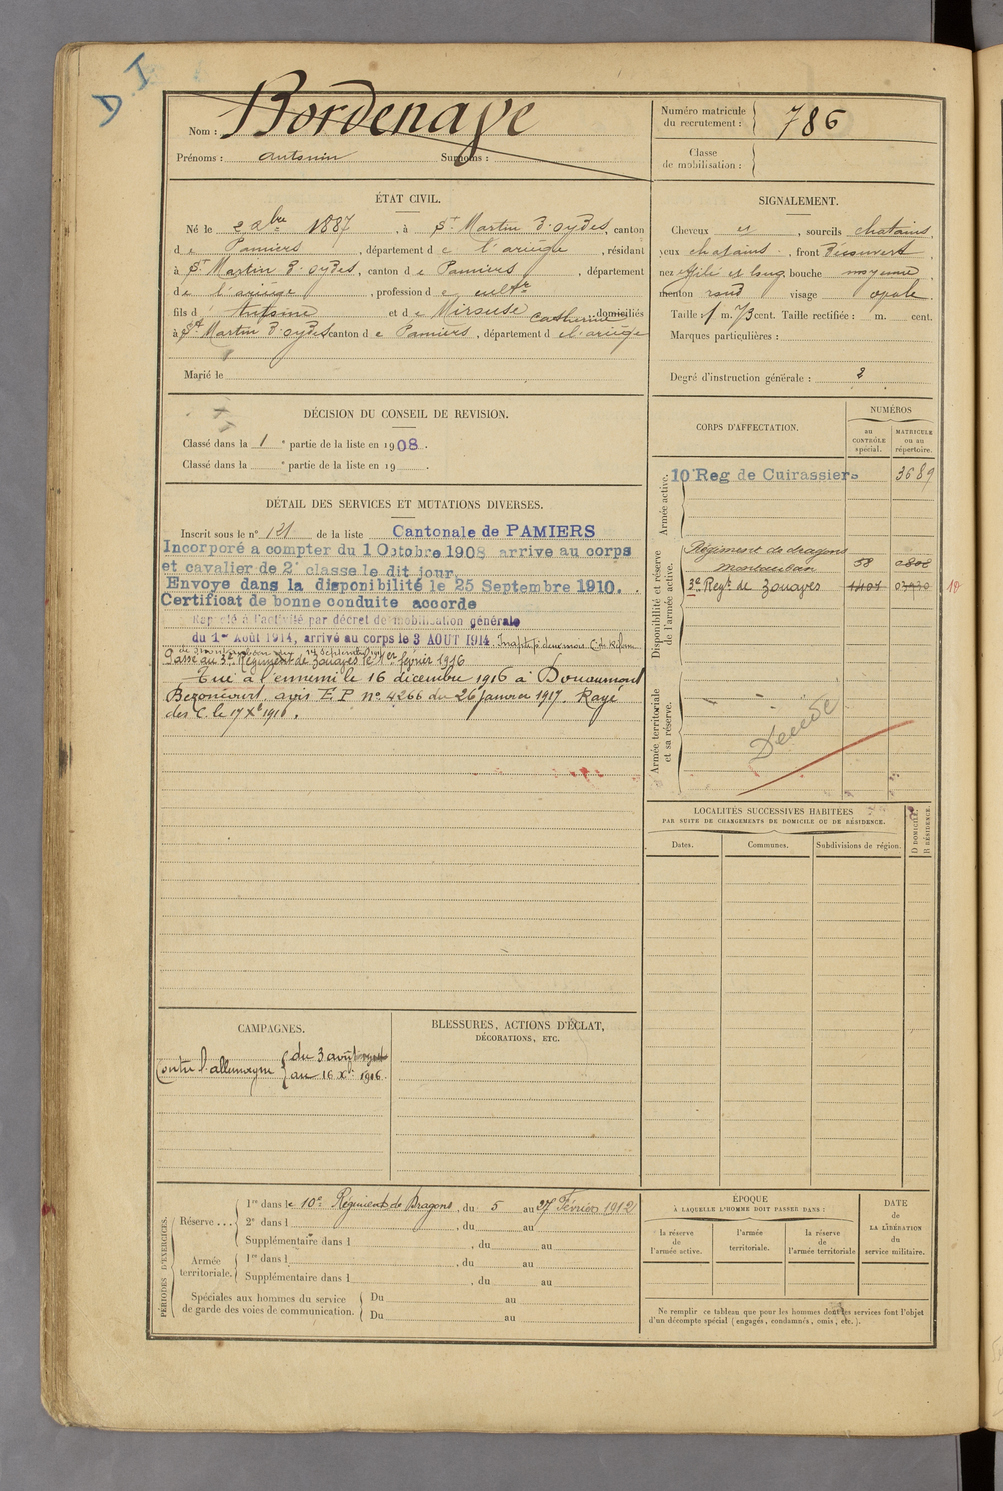 D I
Nom : Bordenave
Prénoms : antonin Surnoms :
Numéro matricule du recrutement : 786
Classe de mobilisation :
ÉTAT CIVIL.
Né le 2 Xbre 1887, à St Martin D'oydes, canton
de Pamiers, département de l'ariège, résidant
à St Martin D'oydes, canton de Pamiers, département
de l'ariège, profession de cultr
fils d' Antoine et de Mirouse Catherine domiciliés
à St Martin D'oydes canton de Pamiers, département de l'ariège
Marié le
SIGNALEMENT.
Cheveux et, sourcils chatains,
yeux chatains, front Découvert,
nez effilé et long, bouche moyenne
menton rond visage ovale
Taille 1 m. 73 cent. Taille rectifiée : m. cent.
Marques particulières :
Degré d'instruction générale : 2
DÉCISION DU CONSEIL DE REVISION.
Classé dans la 1e partie de la liste en 1908.
Classé dans la e partie de la liste en 19 .
CORPS D'AFFECTATION.
NUMÉROS
au CONTRÔLE spécial.
MATRICULE ou au répertoire.
Armée active.
10 Reg de Cuirassiers 3689
Disponibilité et réserve de l'armée active.
Régiment de dragons
Montauban 58
3e Regt. de Zouaves
Armée territoriale et sa réserve.
Décédé
DÉTAIL DES SERVICES ET MUTATIONS DIVERSES.
Inscrit sous le n° 121 de la liste Cantonale de PAMIERS
Incorporé a compter du 1 Octobre 1908 arrive au corps
et cavalier de 2e classe le dit jour.
Envoye dans la disponibilité le 25 Septembre 1910.
Certificat de bonne conduite accorde
Rappelé à l'activité par décret de mobilisation générale
du 1er Août 1914, arrivé au corps le 3 AOUT 1914. Inapte pr deux mois C. de Réforme
de Montauban du septembre
Passé au 3e Régiment de Zouaves le 1er février 1916
Tué à l'ennemi le 16 décembre 1916 à Douaumont
Bezonvaux, avis E P n° 4266 du 26 janvier 1917. Rayé
des C. le 17 Xbre 1916.
LOCALITÉS SUCCESSIVES HABITÉES
PAR SUITE DE CHANGEMENTS DE DOMICILE OU DE RÉSIDENCE.
Dates. Communes. Subdivisions de région. D DOMICILE. R RÉSIDENCE.
CAMPAGNES.
Contre l'allemagne { du 3 août
au 16 Xbre 1916.
BLESSURES, ACTIONS D'ÉCLAT,
DÉCORATIONS, ETC.
PÉRIODES D'EXERCICES.
Réserve ... 1re dans le 10e Régiment de Dragons, du 5 au 27 Février 1912
2e dans l , du au
Supplémentaire dans l , du au
Armée territoriale. 1re dans l , du au
Supplémentaire dans l , du au
Spéciales aux hommes du service de garde des voies de communication. Du au
Du au
ÉPOQUE
À LAQUELLE L'HOMME DOIT PASSER DANS :
la réserve de l'armée active.
l'armée territoriale.
la réserve de l'armée territoriale
DATE de LA LIBÉRATION du service militaire.
Ne remplir ce tableau que pour les hommes dont les services font l'objet
d'un décompte spécial (engagés, condamnés, omis, etc.).